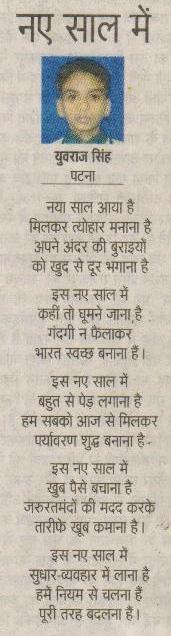 नए साल में
युवराज सिंह
पटना
नया साल आया है
मिलकर त्योहार मनाना है
अपने अंदर की बुराइयों
को खुद से दूर भगाना है
इस नए साल में
कहीं तो घूमने जाना है
गंदगी न फैलाकर
भारत स्वच्छ बनाना हैं।
इस नए साल में
बहुत से पेड़ लगाना है
हम सबको आज से मिलकर
पर्यावरण शुद्ध बनाना है-
इस नए साल में
खुब पैसे बचाना है
जरुरतमंदों की मदद करके
तारीफे खूब कमाना है।
इस नए साल में
सुधार-व्यवहार में लाना है
हमें नियम से चलना हैं
पूरी तरह बदलना हैं।